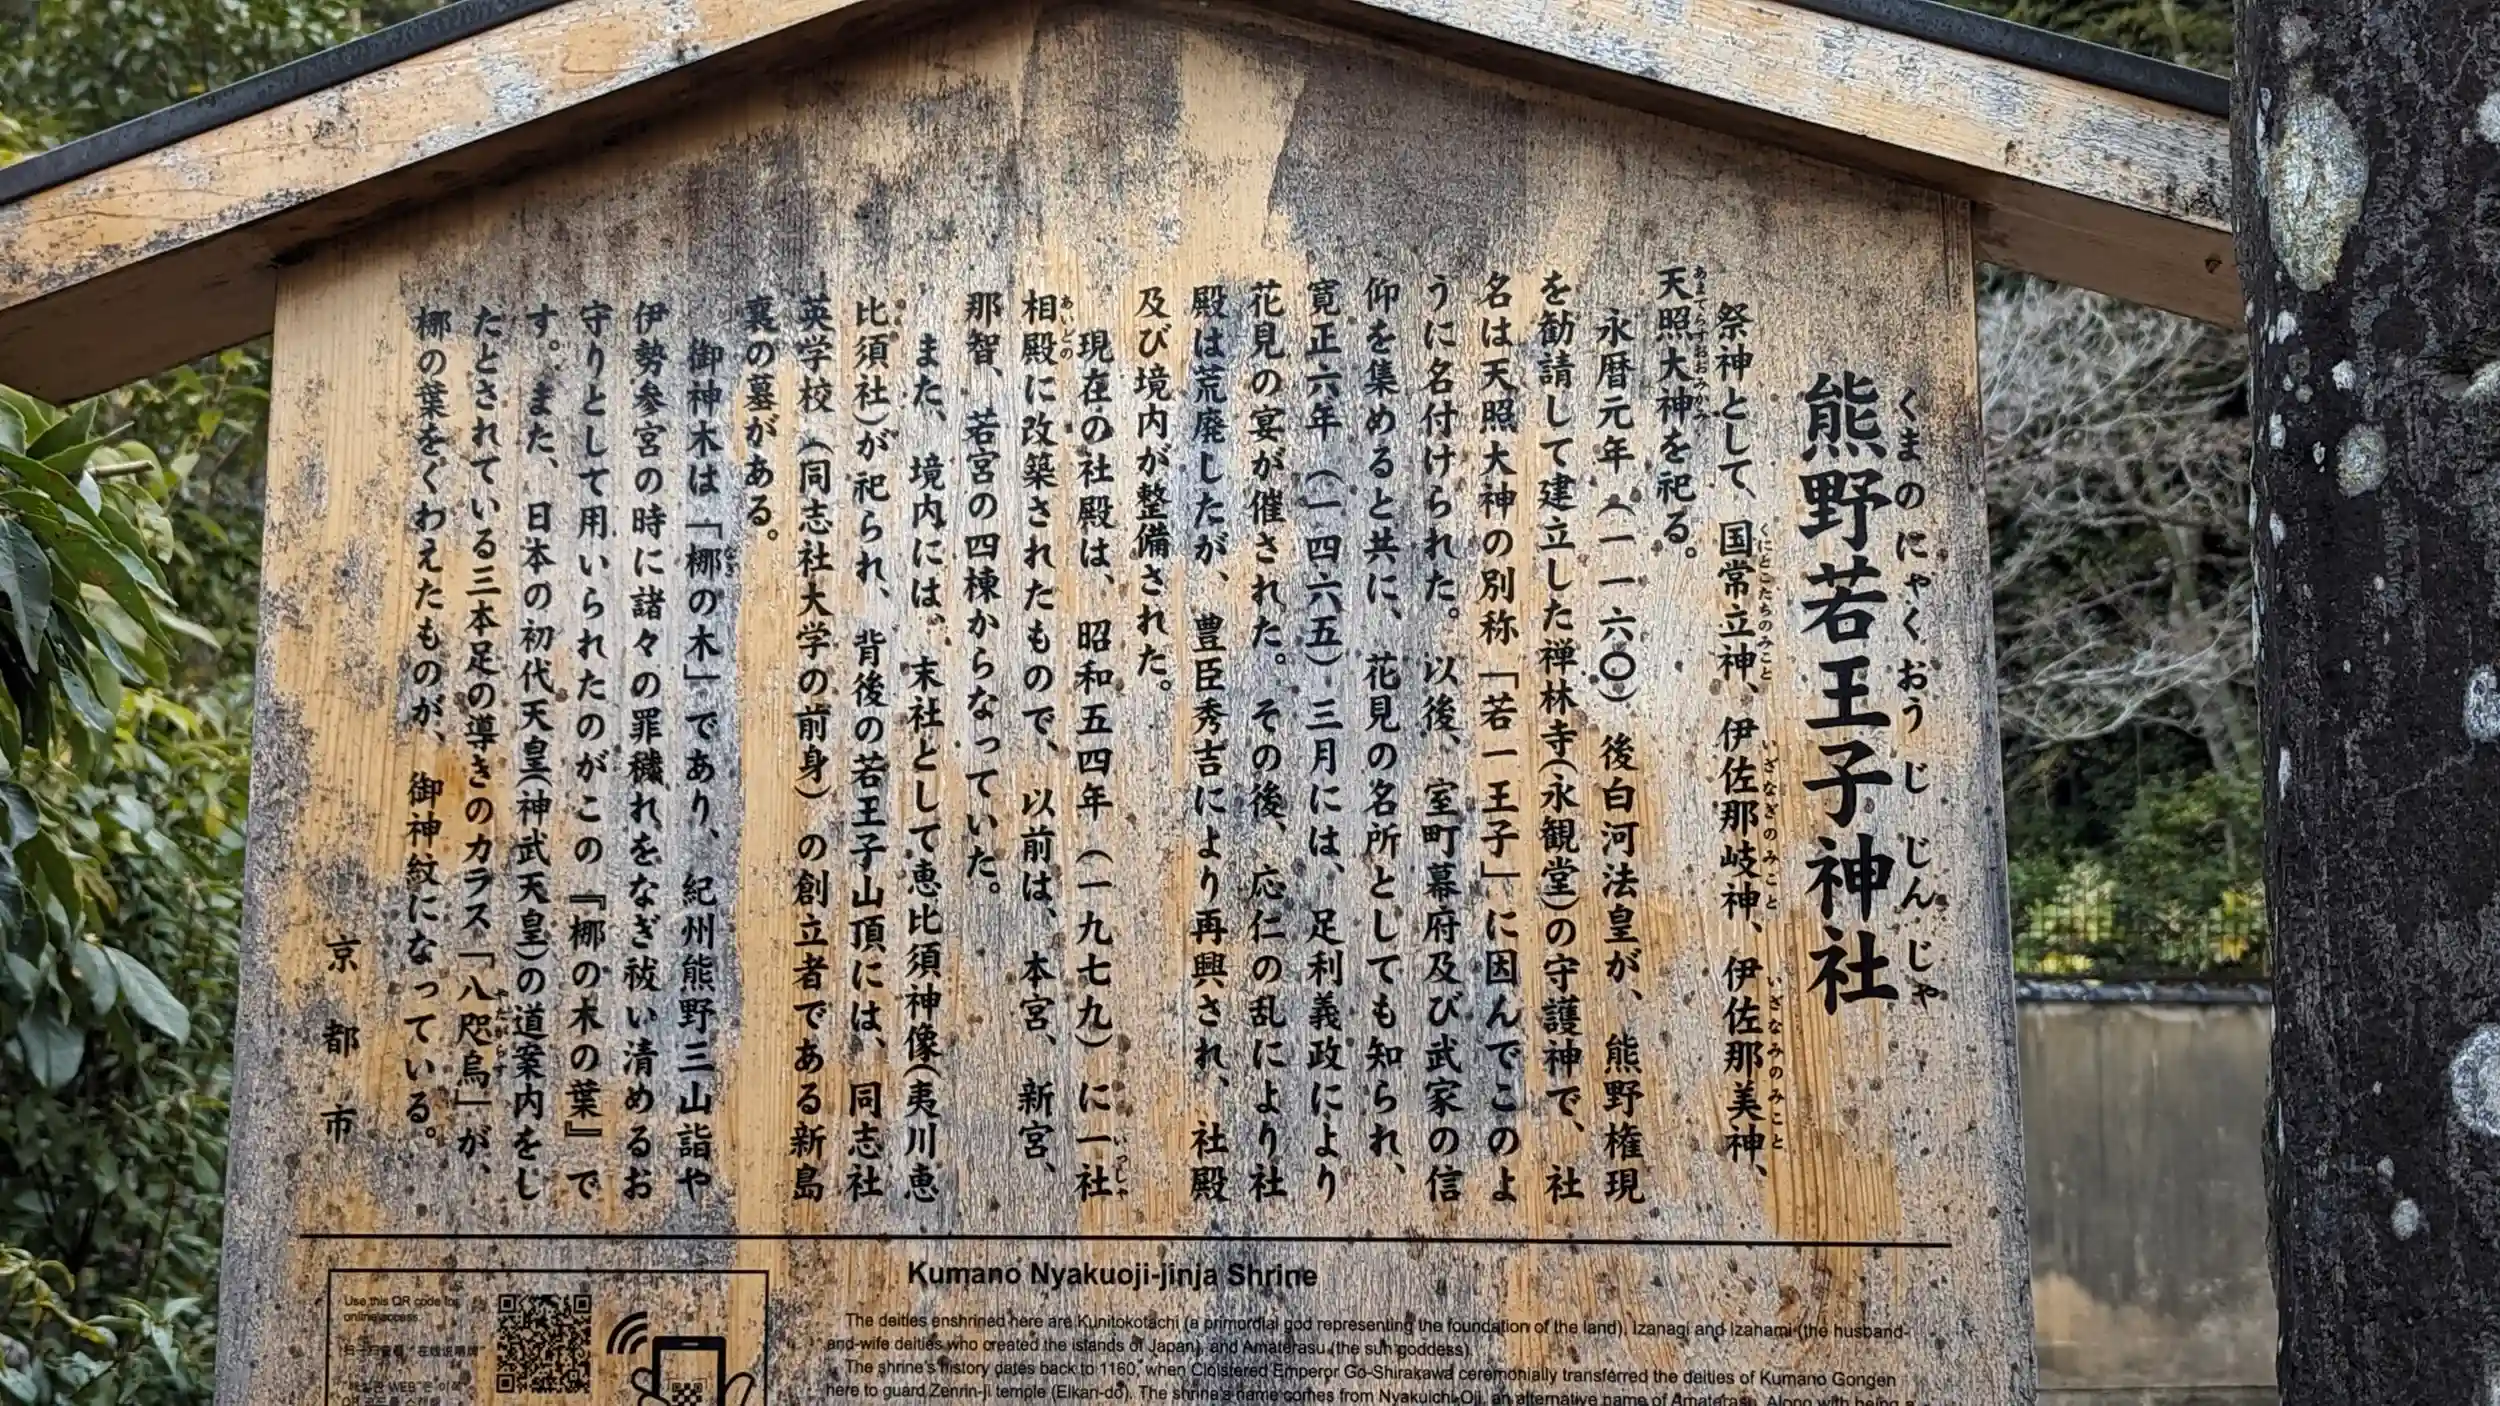 熊野若王子神社
くまのにゃくおうじじんじゃ
祭神として、国常立神、伊佐那岐神、伊佐那美神、
くにとこたちのみこと
いざなぎのみこと
いざなみのみこと
天照大神を祀る。
あまてらすおおみかみ
永暦元年(一一六〇)後白河法皇が、熊野権現
を勧請して建立した禅林寺(永観堂)の守護神で、社
名は天照大神の別称「若一王子」に因んでこのよ
うに名付けられた。以後、室町幕府及び武家の信
仰を集めると共に、花見の名所としても知られ、
寛正六年(一四六五)三月には、足利義政により
花見の宴が催された。その後、応仁の乱により社
殿は荒廃したが、豊臣秀吉により再興され、社殿
及び境内が整備された。
現在の社殿は、昭和五四年(一九七九)に一社
いっしゃ
相殿に改築されたもので、以前は、本宮、新宮、
あいどの
那智、若宮の四棟からなっていた。
また、境内には、末社として恵比須神像(夷川恵
比須社)が祀られ、背後の若王子山頂には、同志社
英学校(同志社大学の前身)の創立者である新島
襄の墓がある。
御神木は「梛の木」であり、紀州熊野三山詣や
なぎ
伊勢参宮の時に諸々の罪穢れをなぎ祓い清めるお
守りとして用いられたのがこの『梛の木の葉』で
す。また、日本の初代天皇(神武天皇)の道案内をし
たとされている三本足の導きのカラス「八咫烏」が、
やたがらす
梛の葉をくわえたものが、御神紋になっている。
京都市
Kumano Nyakuoji-jinja Shrine
The deities enshrined here are Kunitokotachi (a primordial god representing the foundation of the land), Izanagi and Izanami (the husband-
and-wife deities who created the islands of Japan), and Amaterasu (the sun goddess).
The shrine's history dates back to 1160, when Cloistered Emperor Go-Shirakawa ceremonially transferred the deities of Kumano Gongen
here to guard Zenrin-ji temple (Eikan-do). The shrine's name comes from Nyakuichi-Oji, an alternative name of Amaterasu. Along with being a
Use this QR code for
online access.
扫一扫查看"在线说明牌"